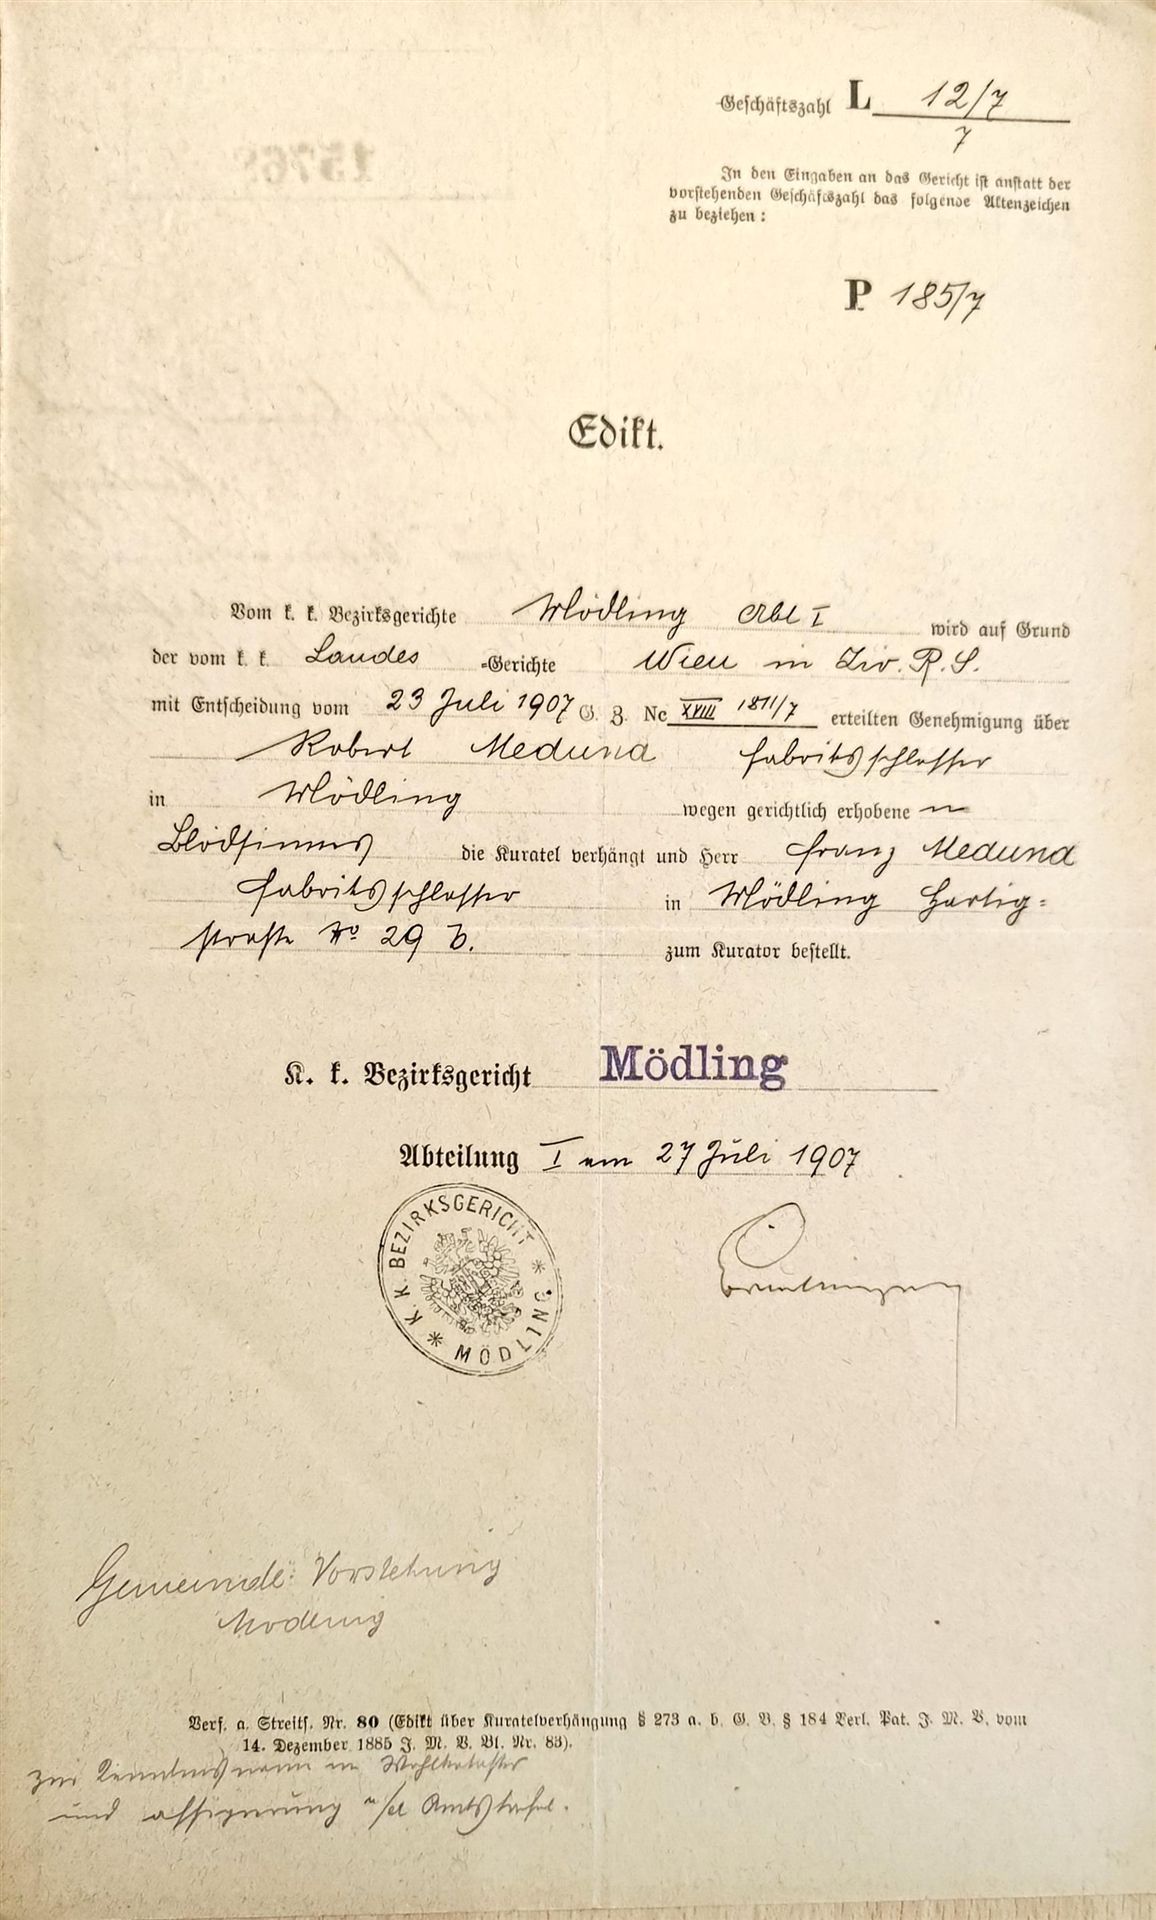 Geschäftszahl L 12/7
7
In den Eingaben an das Gericht ist anstatt der
vorstehenden Geschäftszahl das folgende Aktenzeichen
zu beziehen:
P 185/7
Edikt.
Vom k. k. Bezirksgerichte Mödling Abt I wird auf Grund
der vom k. k. Landes -Gerichte Wien in Ziv. R. S.
mit Entscheidung vom 23 Juli 1907 G. Z. Nc XVIII 1811/7 erteilten Genehmigung über
Robert Meduna Fabriksschlosser
in Mödling wegen gerichtlich erhobene n
Blödsinnes die Kuratel verhängt und Herr Franz Meduna
Fabriksschlosser in Mödling Hartig=
straße No 29 b. zum Kurator bestellt.
K. k. Bezirksgericht Mödling
Abteilung I am 27 Juli 1907
K. K. BEZIRKSGERICHT * MÖDLING *
Gemeinde-Vorstehung
Mödling
Verf. a. Streits. Nr. 80 (Edikt über Kuratelverhängung § 273 a. b. G. B. § 184 Verl. Pat. J. M. V. vom
14. Dezember 1885 J. M. V. Bl. Nr. 83).
zur Kenntnisnahme im Wahlkataster
und affigierung a/d Amtstafel.